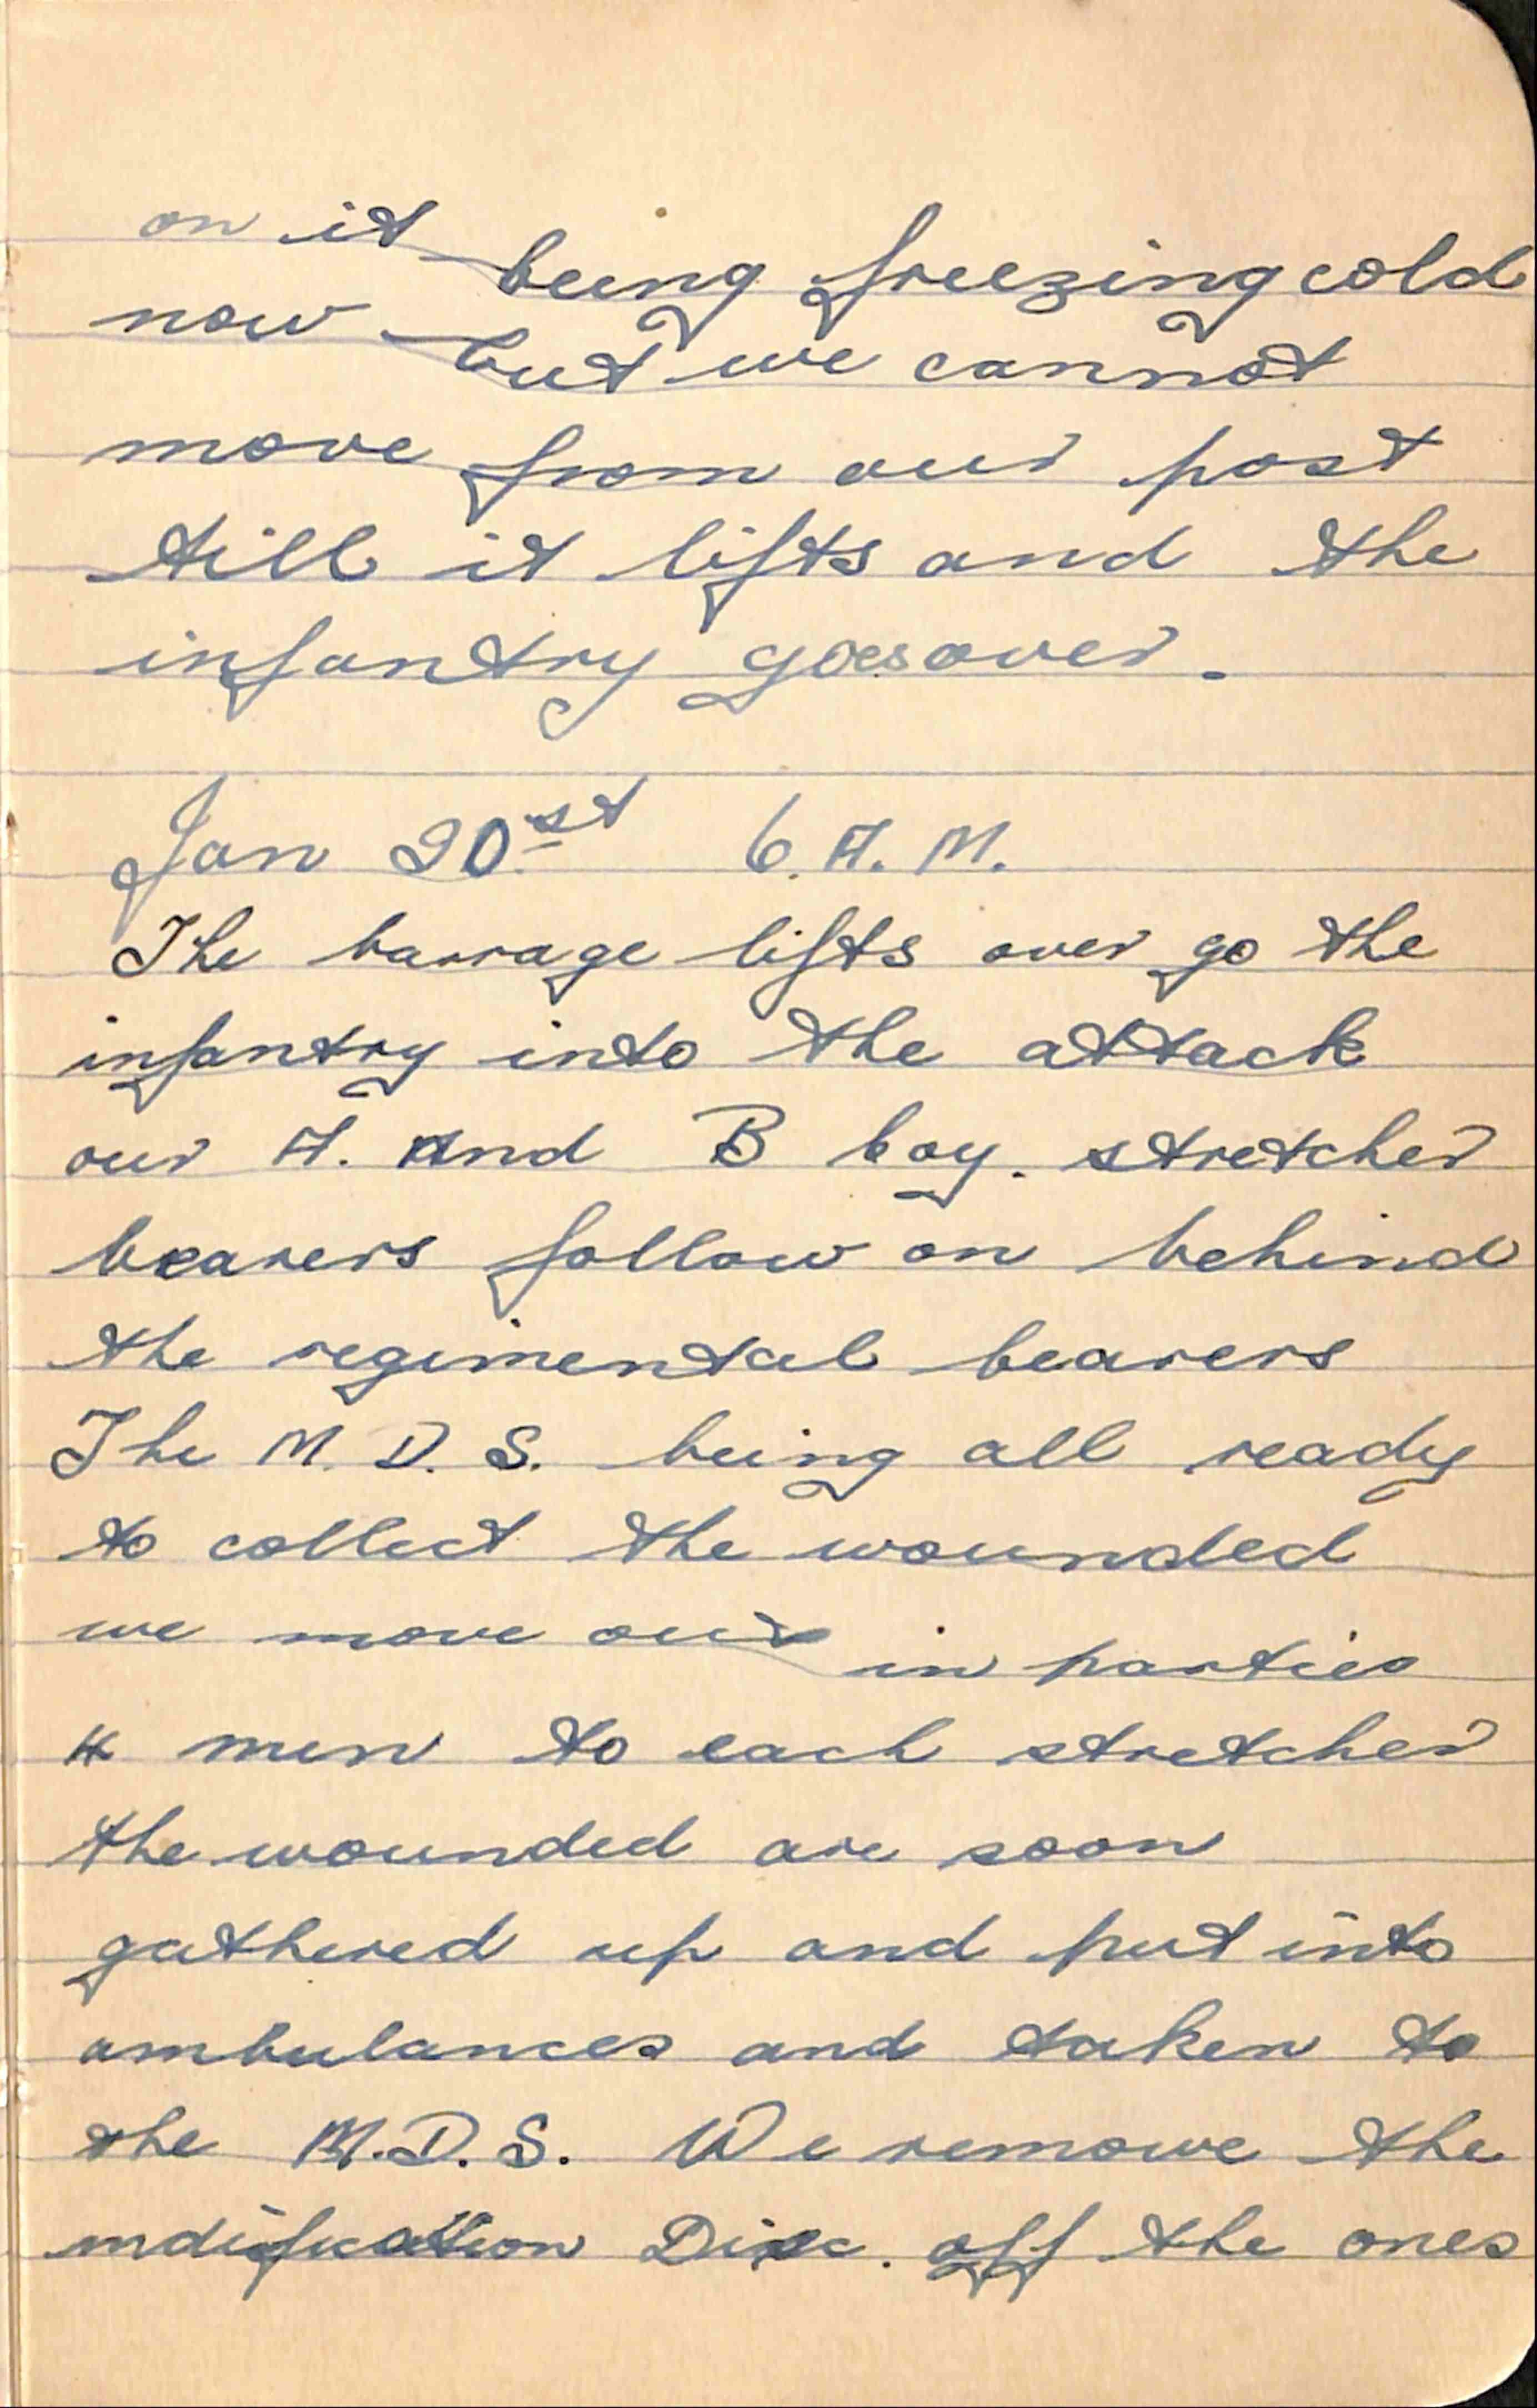 on it being freezing cold
now but we cannot
move from our post
till it lifts and the
infantry goes over.
Jan 20st 6. A. M.
The barrage lifts over go the
infantry into the attack
our A. and B Coy. stretcher
bearers follow on behind
the regimental bearers
The M. D. S. being all ready
to collect the wounded
we move out in parties
4 men to each stretcher
the wounded are soon
gathered up and put into
ambulances and taken to
the M.D.S. We remove the
indification Disc. off the ones